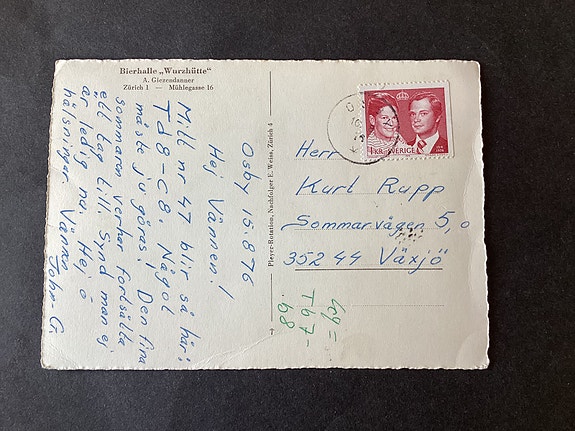 Bierhalle „Wurzhütte"
A. Giezendanner
Zürich 1 — Mühlegasse 16
Osby 15.8 76
Hej Vännen!
Mitt nr 47 blir så här:
Td8-c8. Något
måste ju göras! Den fina
sommaren verkar fortsätta
ett tag till. Synd man ej
är ledig nu. Hej o
hälsningar Vännen
John-G.
Pleyer-Rotation, Nachfolger E. Weiss, Zürich 4
1 KR SVERIGE
Herr
Kurl Rupp
Sommarvägen 5, o
352 44 Växjö
49=
Tb7-
b8